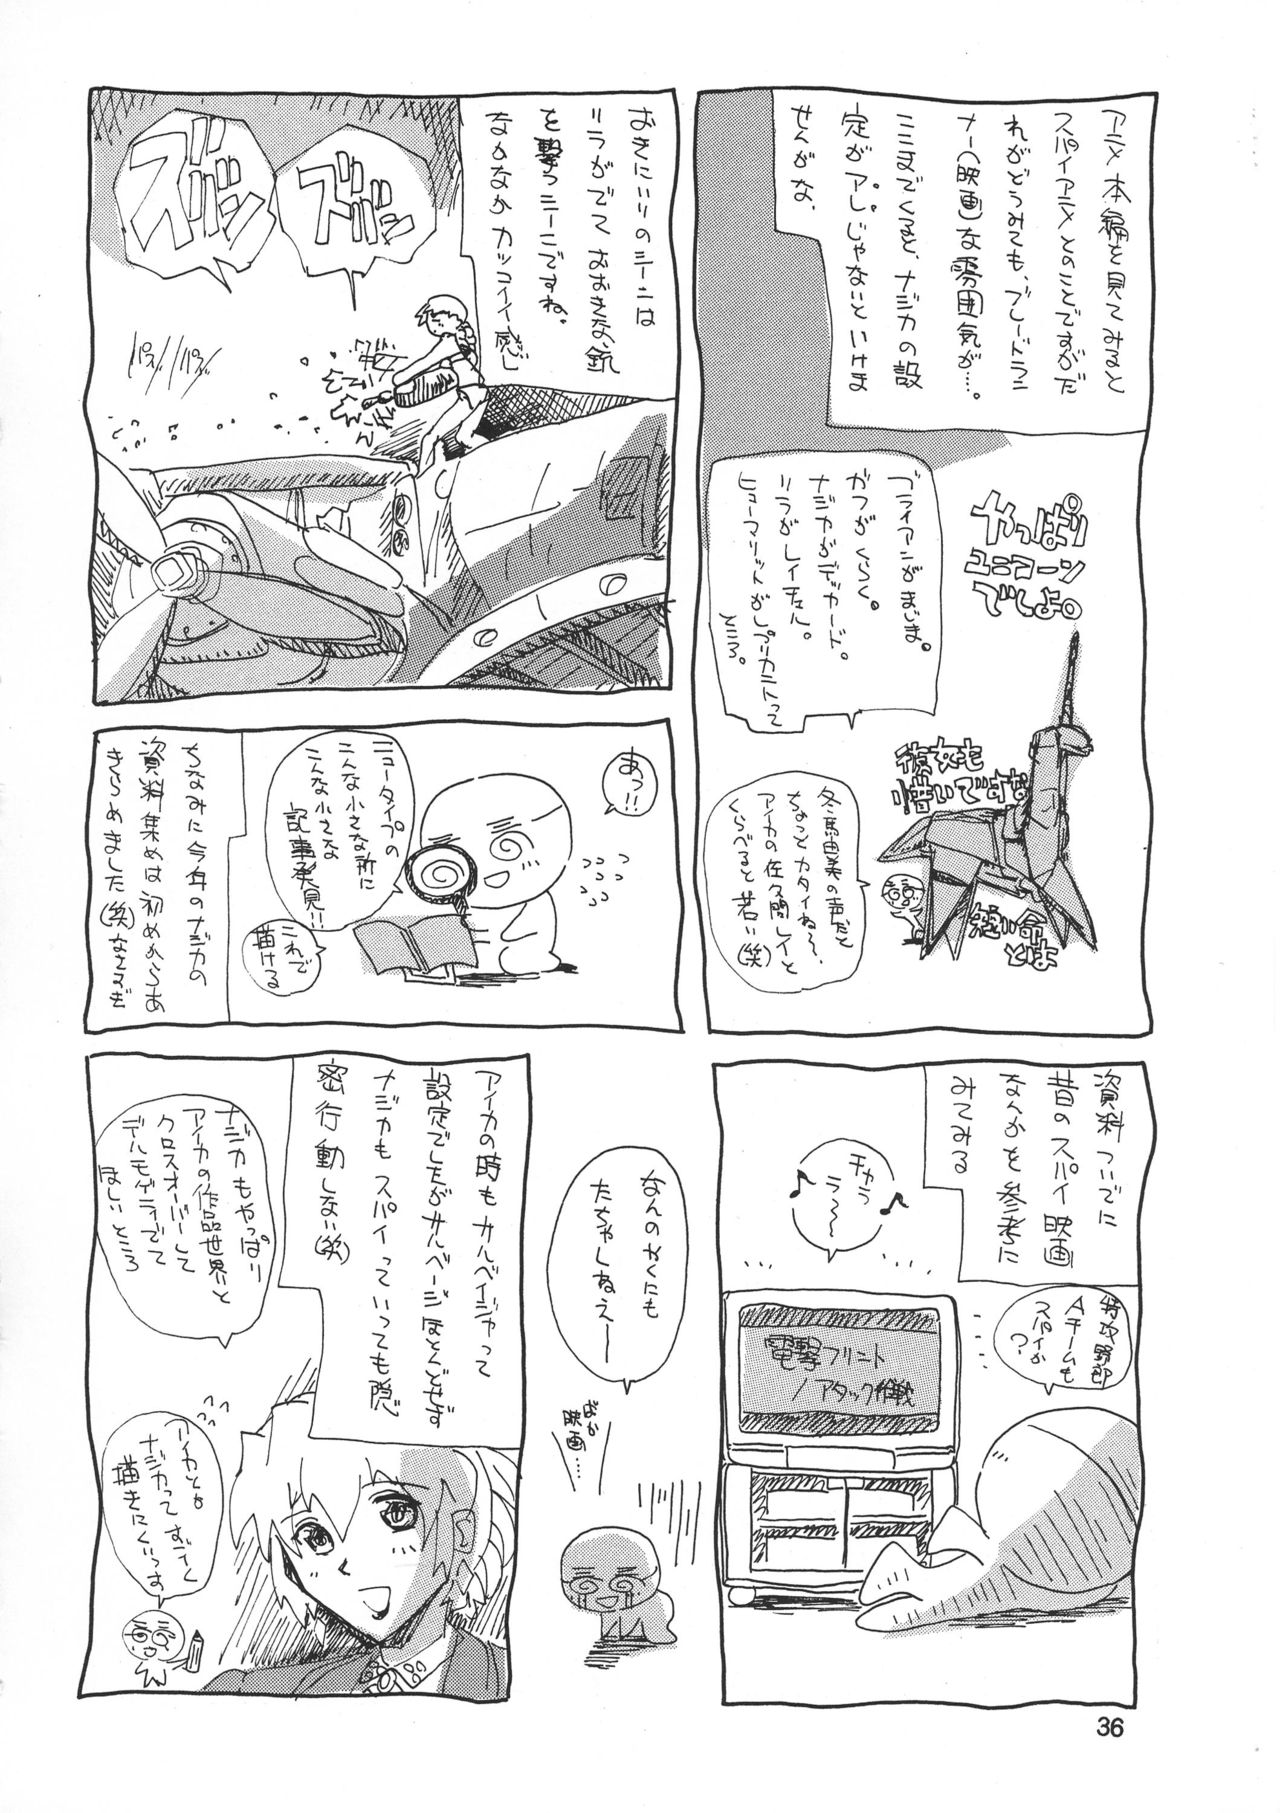 アニメ本編を見てみると
スパイアニメとのことですがだ
れがどうみても、ブレードラン
ナー(映画)な雰囲気が…。
ここまでくると、ナジカの設
定がアレじゃないといけま
せんがな。
やっぱり
ユニコーン
でしょ。
ブライアンがまじま。
ガフがいらく。
ナジカがデッカード。
リラがレイチェル。
ヒューマリットがレプリカントって
ところ。
彼女も
惜いですな
短い命
とは
冬馬由美の声だと
ちょっとカタイね〜、
アイカの佐久間レイと
くらべると若い(笑)
おきにいりのシーンは
リラがでて おおきな銃
を撃つシーンですね。
なかなかカッコイイ感じ
ズバババッ
ズバババッ
パス//パス/
あっ!!
ニュータイプの
こんな小さな所に
こんな小さな
記事発見!!
これで
描ける
ちなみに今年のナジカの
資料集めは初めからあ
きらめました(笑)なさすぎ
資料ついでに
昔のスパイ映画
なんかを参考に
みてみる
チャラ
ラ〜〜
特攻野郎
Aチームも
スパイか
?
電撃フリント
/アタック作戦
なんのやくにも
たちゃしねえ――
ばか
映画…
アイカの時もサルベイジャって
設定でしたがサルベージほとんどせず
ナジカもスパイっていっても隠
密行動しない(笑)
ナジカもやっぱり
アイカの作品世界と
クロスオーバーして
デルモゲラでて
ほしいところ
アイカとも
ナジカってすごく
描きにくいっす
36